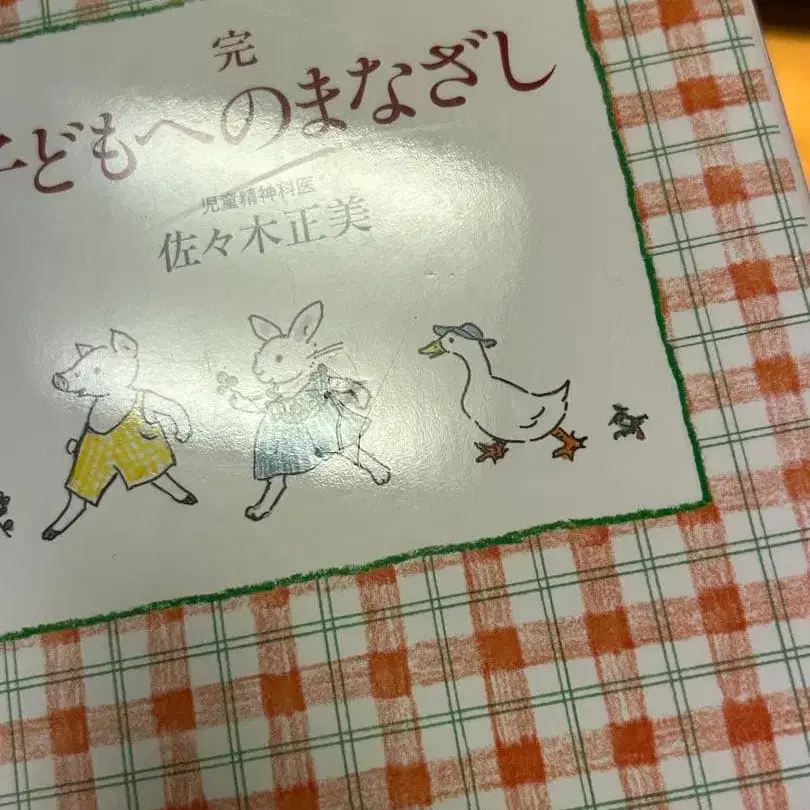 完
子どもへのまなざし
児童精神科医
佐々木正美